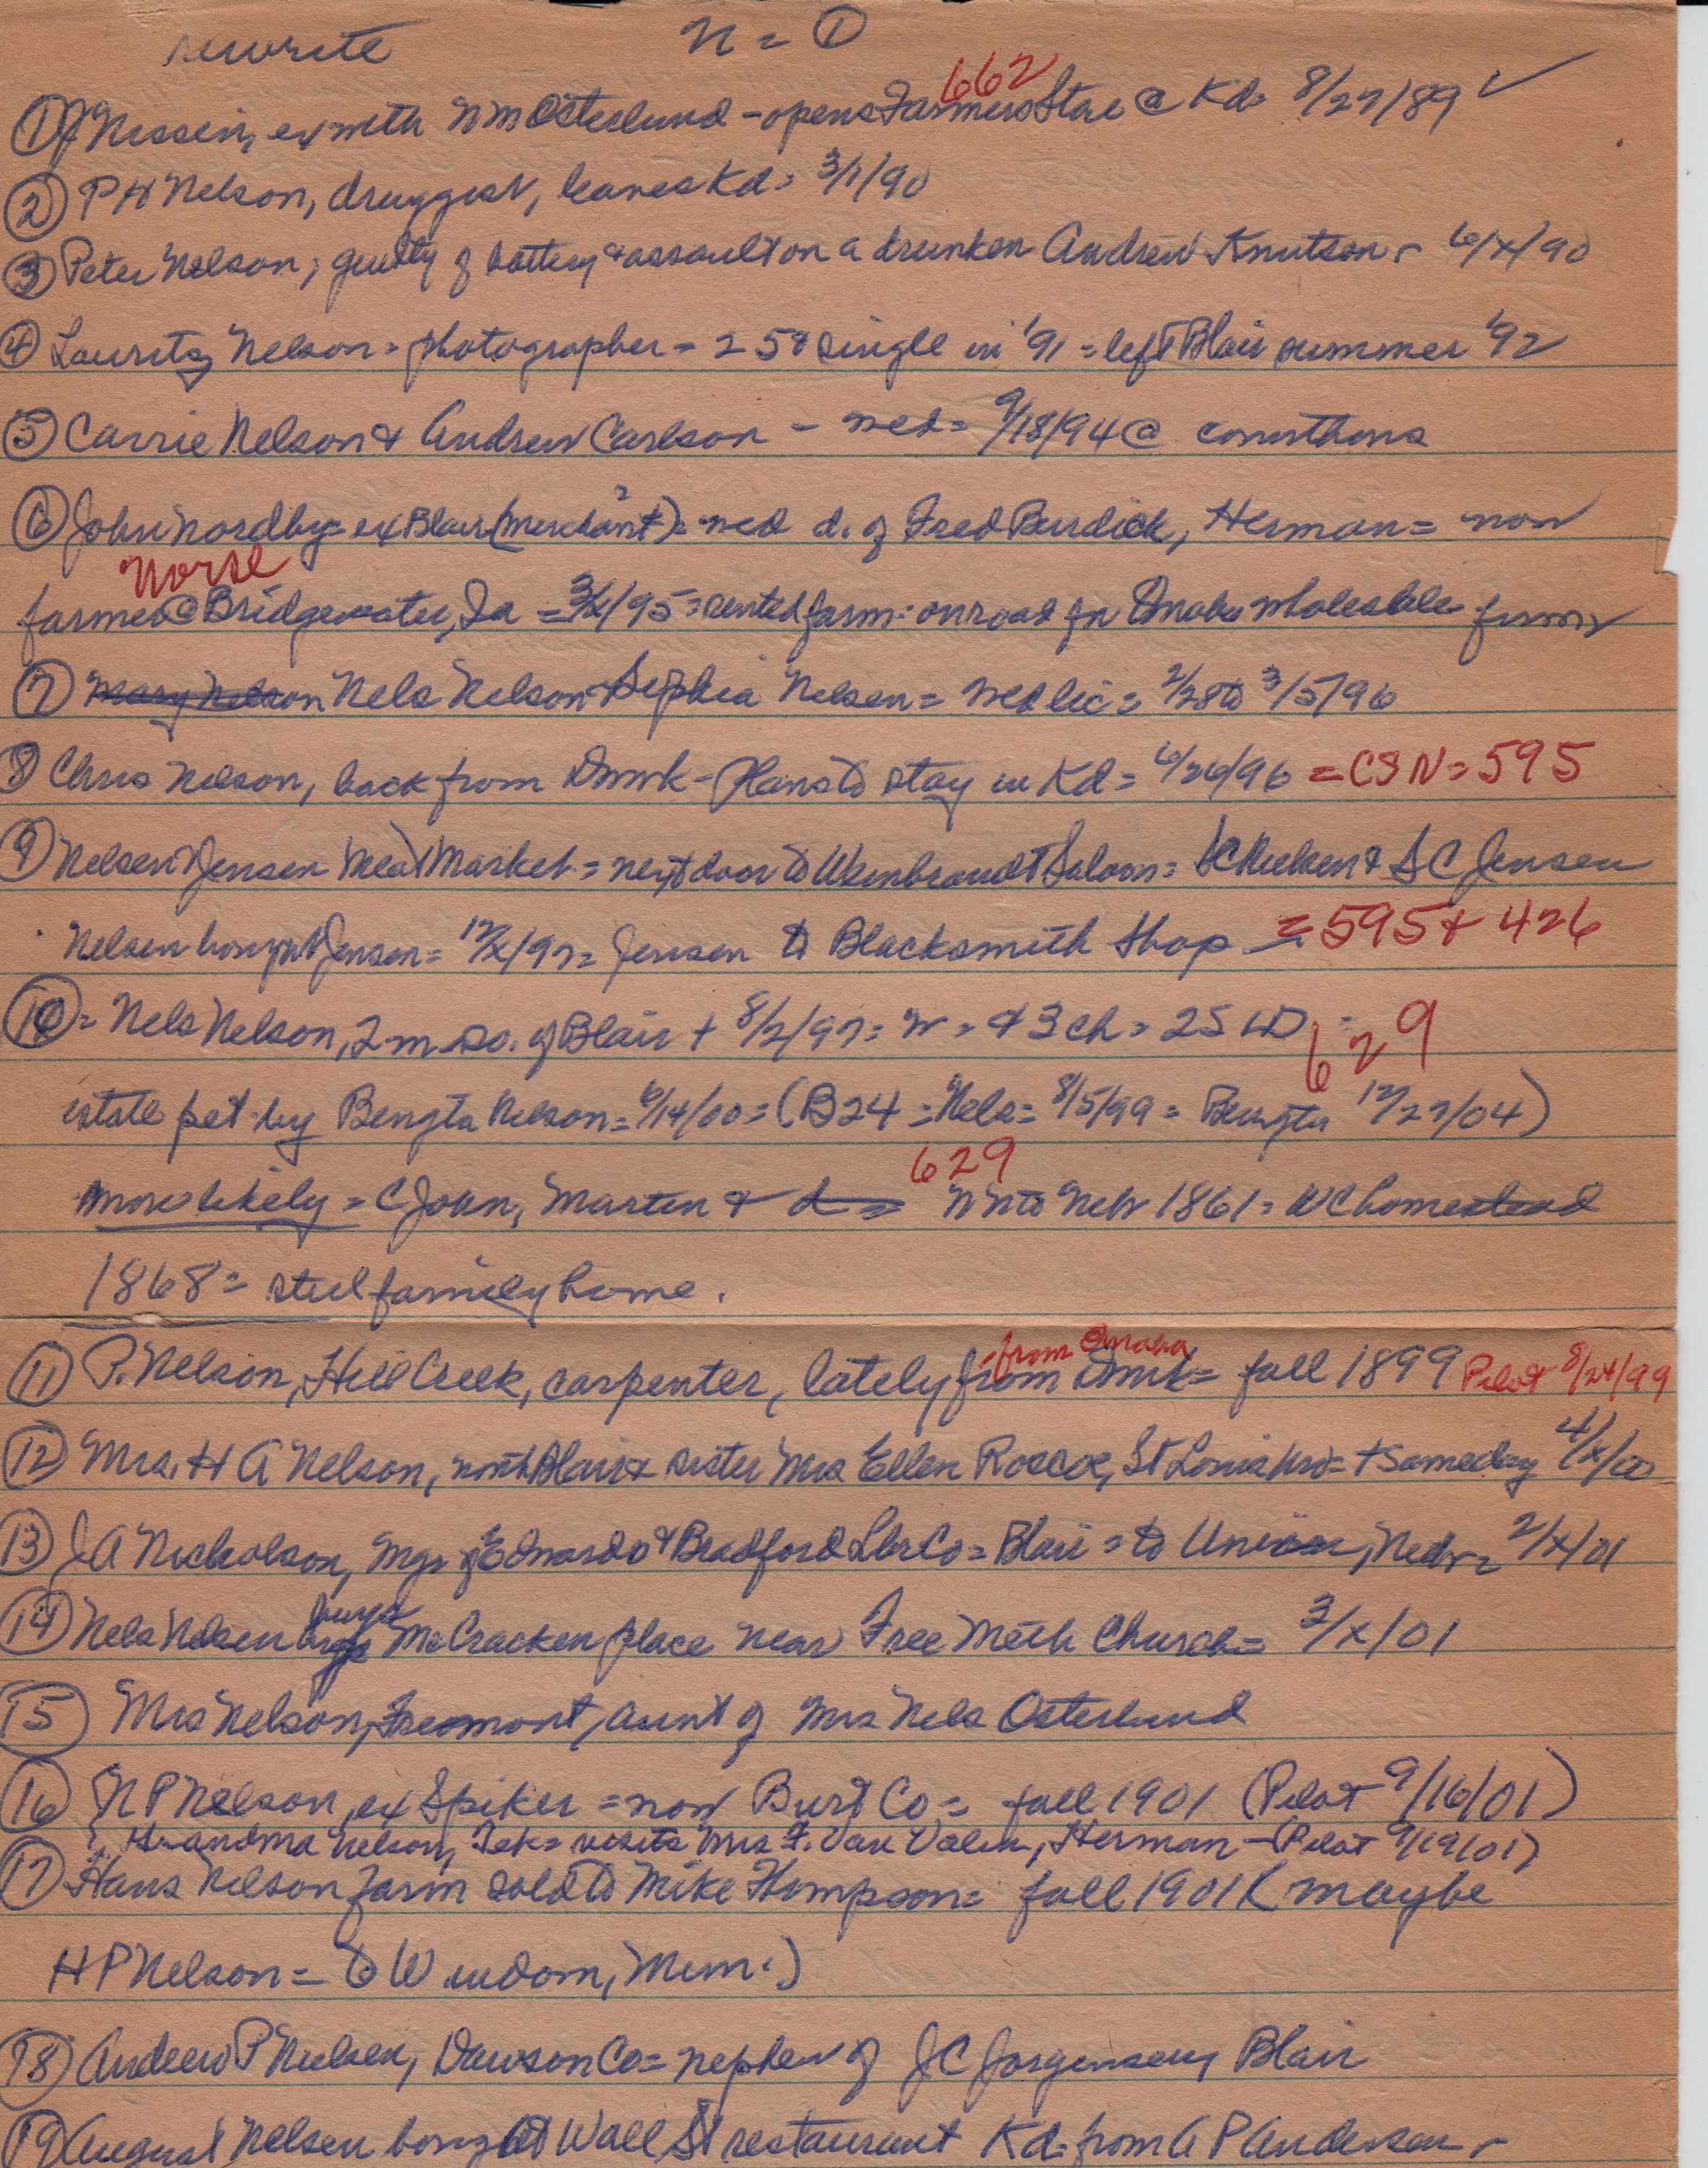 rewrite N = ①
662
① J Nissen, ex with Wm Osterlund - opens Farmers Store @ Kd = 8/27/89 ✓
② P H Nelson, druggist, leaves Kd = 3/1/90
③ Peter Nelson; guilty of battery & assault on a drunken Andrew Knutson - 6/x/90
④ Lauritz Nelson = photographer = 25 & single in '91 = left Blair summer '92
⑤ Carrie Nelson & Andrew Carlson - wed = 9/18/94 @ courthous
⑥ John Nordby = ex Blair (merchant?) = wed d. of Fred Burdick, Herman = now
Norse
farmer @ Bridgewater, Ia = 3/x/95 = rented farm = on road for Omaha wholesale firm
⑦ Mary Nelson Nels Nelson - Sophia Nelsen = wed lic = 2/28 to 3/5/96
⑧ Chris Nelson, back from Dnmk - Plans to stay in Kd = 6/26/96 = CSN = 595
⑨ Nelsen & Jensen Meat Market = next door to Weinbrandt Saloon = SC Nielsen & SC Jensen
Nelsen bought Jensen = 12/x/97 = Jensen to Blacksmith Shop = 595 & 426
⑩ = Nels Nelson, 2 m so. of Blair + 8/2/97 = w = & 3 ch = 25 WD = 629
estate pet by Bengta Nelson = 6/14/00 = (B24 = Nels = 8/5/99 = Bengta 12/27/04)
629
more likely = C John, Martin & d = NN to Nebr 1861 = WC homestead
1868 = still family home.
from Omaha
⑪ P. Nelson, Hill Creek, carpenter, lately from Dnmk = fall 1899 Pilot 8/24/99
⑫ Mrs. H A Nelson, north Blair & sister Mrs Ellen Roscoe, St Louis = + same day 4/x/00
⑬ J A Nickolson, mgr of Edwards & Bradford Lbr Co = Blair = to Union, Nebr = 2/x/01
⑭ Nels Nelsen buys McCracken place near Free Meth Church = 3/x/01
⑮ Mrs Nelson, Fremont, aunt of Mrs Nels Osterlund
⑯ N P Nelson, ex Spiker = now Burt Co = fall 1901 (Pilot 9/16/01)
Grandma Nelson, Tek = visits Mrs F. Van Valin, Herman - (Pilot 9/19/01)
⑰ Hans Nelson farm sold to Mike Thompson = fall 1901 (maybe
H P Nelson = to Windom, Minn.)
⑱ Andrew P Nielsen, Dawson Co = nephew of J C Jorgensen, Blair
⑲ August Nelsen bought Wall St restaurant Kd = from A P Andersen -